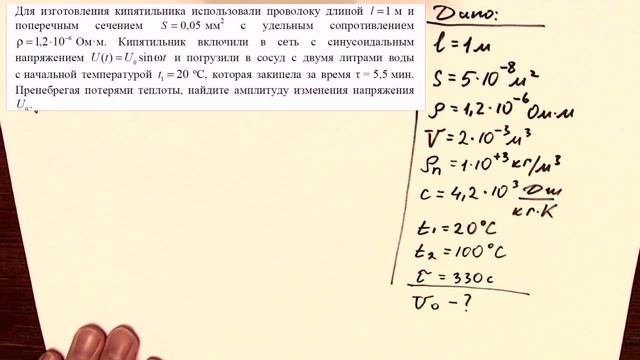 Для изготовления кипятильника использовали проволоку длиной l = 1 м и
поперечным сечением S = 0,05 мм² с удельным сопротивлением
ρ = 1,2·10⁻⁶ Ом·м. Кипятильник включили в сеть с синусоидальным
напряжением U(t) = U₀ sin ωt и погрузили в сосуд с двумя литрами воды
с начальной температурой t₁ = 20 °C, которая закипела за время τ = 5,5 мин.
Пренебрегая потерями теплоты, найдите амплитуду изменения напряжения
U₀.
Дано:
l = 1 м
S = 5·10⁻⁸ м²
ρ = 1,2·10⁻⁶ Ом·м
V = 2·10⁻³ м³
ρп = 1·10⁺³ кг/м³
c = 4,2·10³ Дж/кг·К
t₁ = 20°C
t₂ = 100°C
τ = 330 с
U₀ - ?